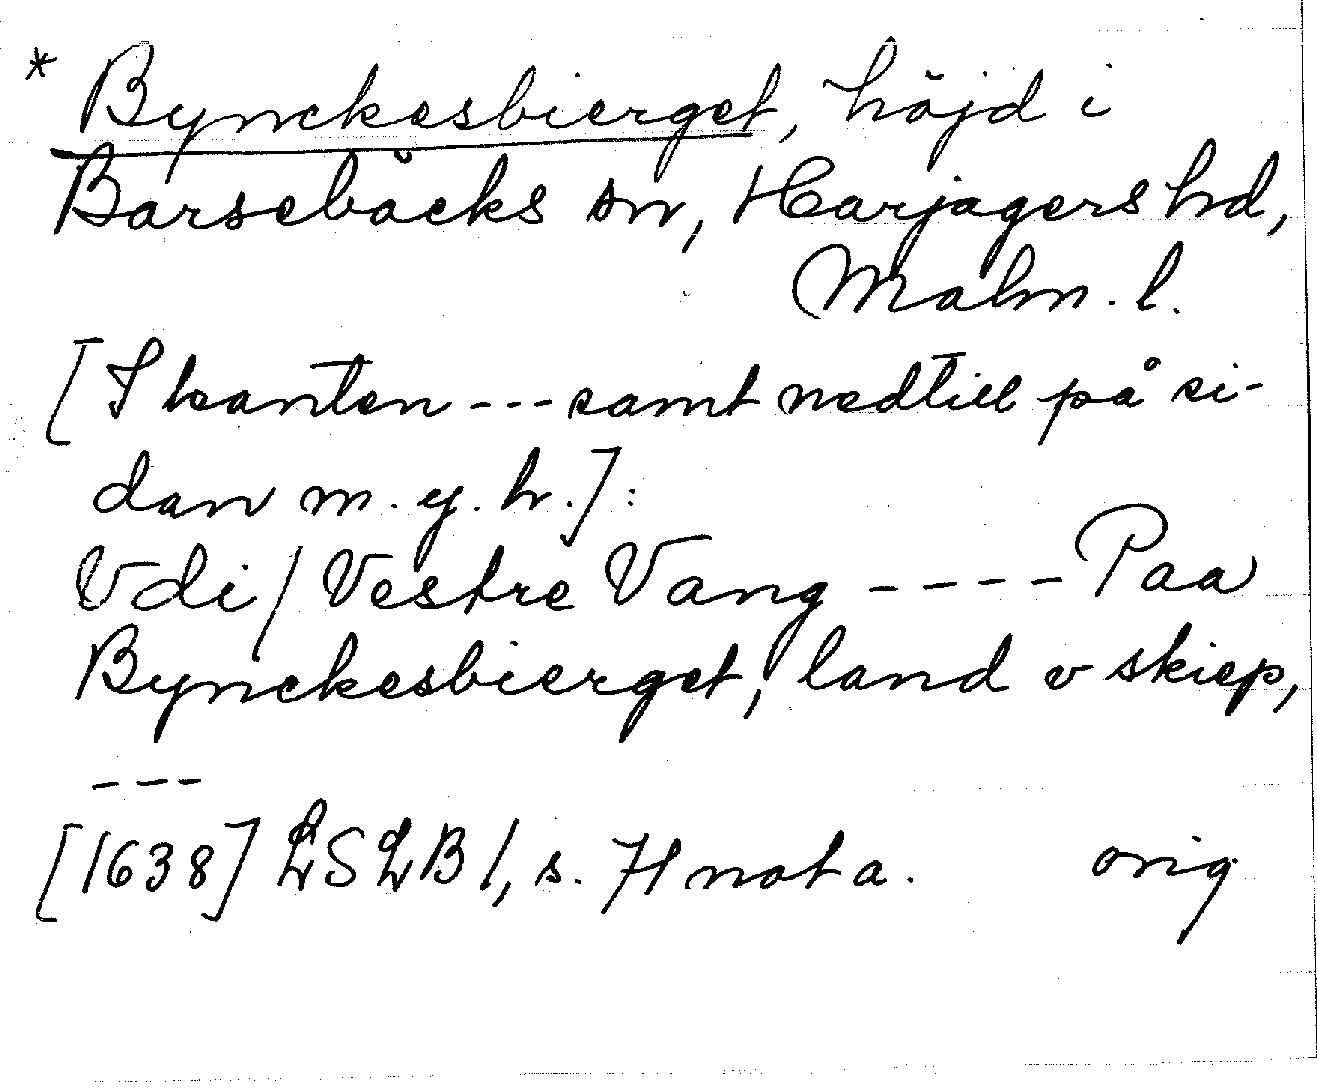 * Bynckesbierget, höjd i
Barsebäcks sn, Harjagers hd,
Malm. l.
[I kanten --- samt nedtill på si-
dan m. y. h.]:
Vdi / Vestre Vang ---- Paa
Bynckesbierget, land v skiep,
---
[1638] LSLB 1, s. 71 nota. orig